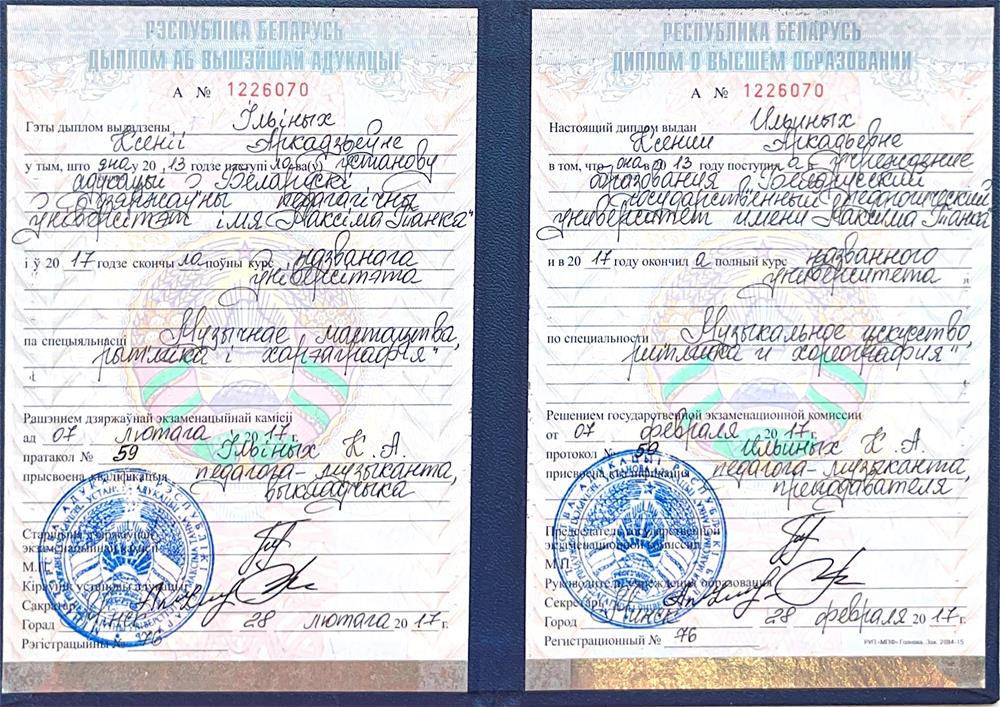 РЭСПУБЛІКА БЕЛАРУСЬ
ДЫПЛОМ АБ ВЫШЭЙШАЙ АДУКАЦЫІ
А № 1226070
Гэты дыплом выдадзены Ільіных
Ксеніі Аркадзьеўне
у тым, што яна у 20 13 годзе наступі ла ва ўстанову
адукацыі "Беларускі
дзяржаўны педагагічны
ўніверсітэт імя Максіма Танка"
і ў 20 17 годзе скончы ла поўны курс названага
ўніверсітэта
па спецыяльнасці "Музычнае мастацтва,
рытміка і харэаграфія"
Рашэннем дзяржаўнай экзаменацыйнай камісіі
ад 07 лютага 20 17 г.
пратакол № 59 Ільіных К. А.
прысвоена кваліфікацыя педагога-музыканта,
выкладчыка
Старшыня дзяржаўнай
экзаменацыйнай камісіі
М.П.
Кіраўнік установы адукацыі
Сакратар
Горад Мінск 28 лютага 20 17 г.
Рэгістрацыйны № 76
РЕСПУБЛИКА БЕЛАРУСЬ
ДИПЛОМ О ВЫСШЕМ ОБРАЗОВАНИИ
А № 1226070
Настоящий диплом выдан Ильиных
Ксении Аркадьевне
в том, что она в 20 13 году поступил а в учреждение
образования "Белорусский
государственный педагогический
университет имени Максима Танка"
и в 20 17 году окончил а полный курс названного
университета
по специальности "Музыкальное искусство,
ритмика и хореография"
Решением государственной экзаменационной комиссии
от 07 февраля 20 17 г.
протокол № 59 Ильиных К. А.
присвоена квалификация педагога-музыканта,
преподавателя
Председатель государственной
экзаменационной комиссии
М.П.
Руководитель учреждения образования
Секретарь
Город Минск 28 февраля 20 17 г.
Регистрационный № 76
РУП «МПФ» Гознака. Зак. 2084-15